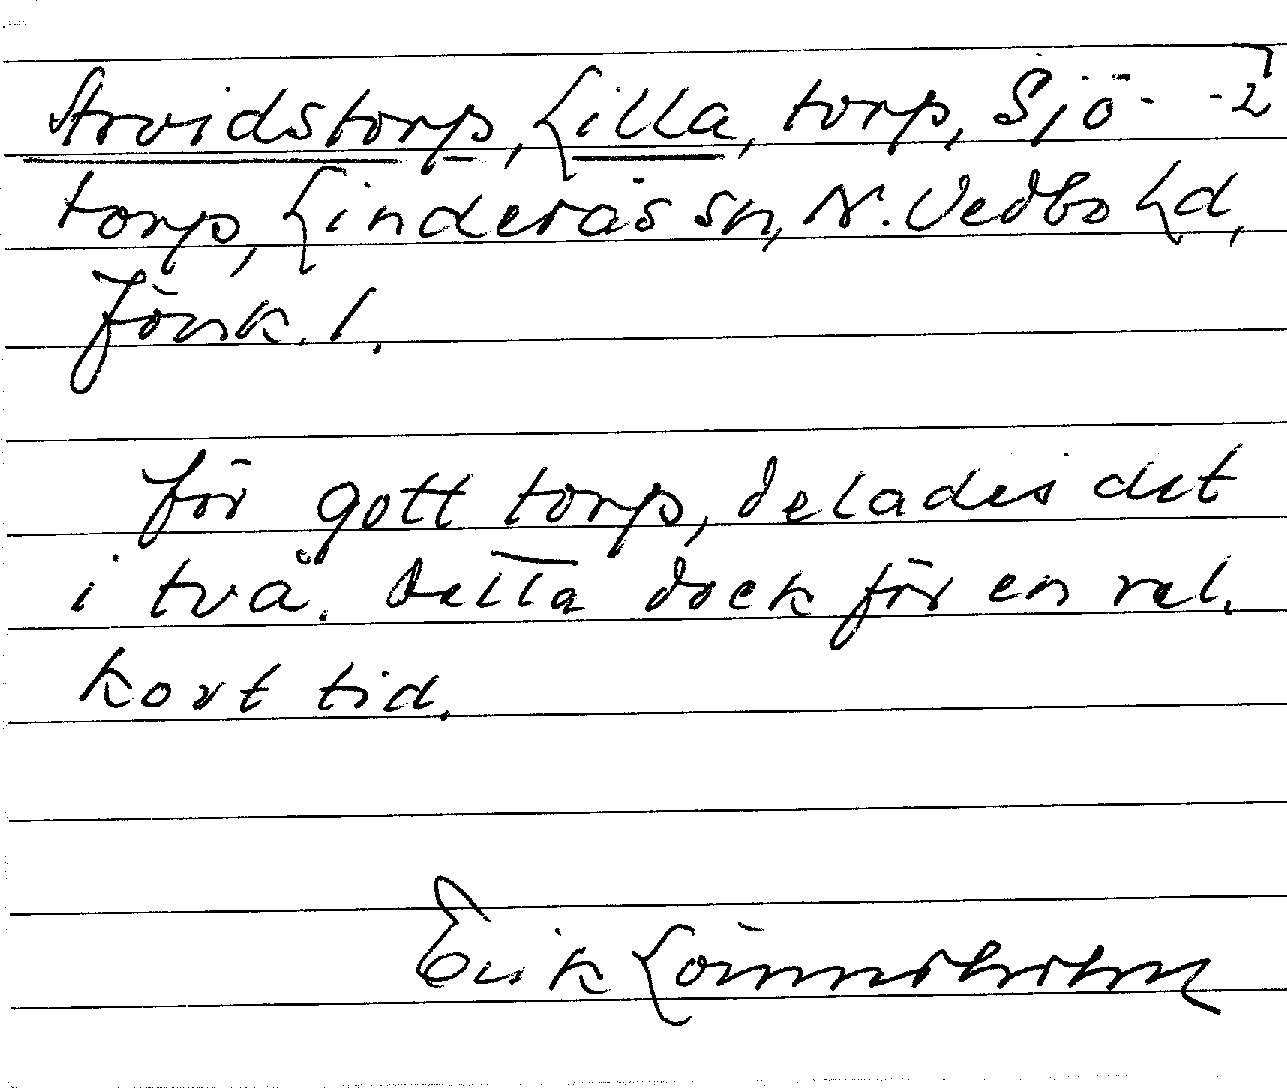 Arvidstorp, Lilla, torp, Sjö- -2
torp, Linderås sn, N. Vedbo hd,
Jönk. l.
för gott torp, delades det
i två. Detta dock för en rel.
kort tid.
Erik Lönnsholm